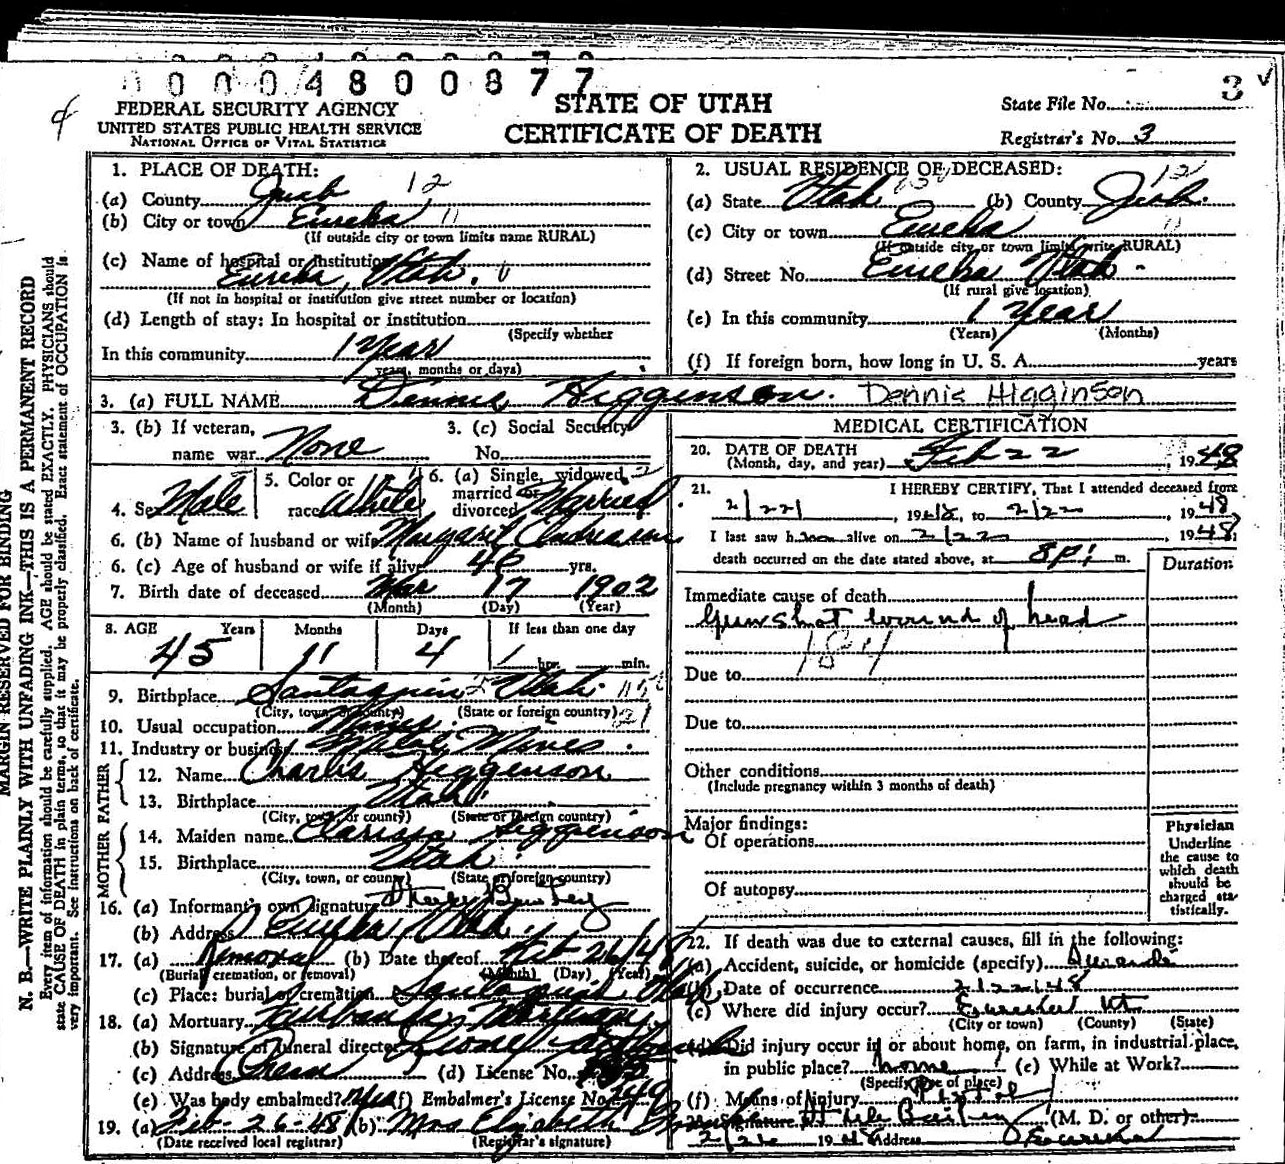 0 0 0 4 8 0 0 8 7 7
3
FEDERAL SECURITY AGENCY
UNITED STATES PUBLIC HEALTH SERVICE
NATIONAL OFFICE OF VITAL STATISTICS
STATE OF UTAH
CERTIFICATE OF DEATH
State File No.
Registrar's No. 3
MARGIN RESERVED FOR BINDING
N. B.—WRITE PLAINLY WITH UNFADING INK—THIS IS A PERMANENT RECORD
Every item of information should be carefully supplied. AGE should be stated EXACTLY. PHYSICIANS should
state CAUSE OF DEATH in plain terms, so that it may be properly classified. Exact statement of OCCUPATION is
very important. See instructions on back of certificate.
1. PLACE OF DEATH:
(a) County Juab 12
(b) City or town Eureka 11
(If outside city or town limits name RURAL)
(c) Name of hospital or institution
Eureka, Utah.
(If not in hospital or institution give street number or location)
(d) Length of stay: In hospital or institution
(Specify whether
In this community 1 Year
years, months or days)
2. USUAL RESIDENCE OF DECEASED:
(a) State Utah (b) County Juab. 12
(c) City or town Eureka 11
(If outside city or town limits write RURAL)
(d) Street No. Eureka Utah
(If rural give location)
(e) In this community 1 Year
(Years) (Months)
(f) If foreign born, how long in U. S. A. years
3. (a) FULL NAME Dennis Higginson. Dennis Higginson
3. (b) If veteran, name war None
3. (c) Social Security No.
4. Sex Male
5. Color or race White
6. (a) Single, widowed, married or divorced Married
6. (b) Name of husband or wife Margaret
6. (c) Age of husband or wife if alive yrs.
7. Birth date of deceased Mar 17 1902
(Month) (Day) (Year)
8. AGE Years Months Days If less than one day
45 11 4 hr. min.
9. Birthplace Santaquin Utah.
(City, town, or county) (State or foreign country)
10. Usual occupation
11. Industry or business Mines
FATHER
12. Name Charles Higgenson
13. Birthplace Utah
(City, town, or county) (State or foreign country)
MOTHER
14. Maiden name Clarissa Higginson
15. Birthplace Utah
(City, town, or county) (State or foreign country)
16. (a) Informant's own signature
(b) Address Eureka Utah.
17. (a) Removal (b) Date thereof Feb 26/48
(Burial, cremation, or removal) (Month) (Day) (Year)
(c) Place: burial or cremation Santaquin Utah
18. (a) Mortuary
(b) Signature of funeral director
(c) Address (d) License No.
(e) Was body embalmed? Yes (f) Embalmer's License No.
19. (a) Feb-26-48 (b) Mrs Elizabeth
(Date received local registrar) (Registrar's signature)
MEDICAL CERTIFICATION
20. DATE OF DEATH
(Month, day, and year) Feb 22, 1948
21. I HEREBY CERTIFY, That I attended deceased from
2/22, 1948, to 2/22, 1948
I last saw him alive on 2/22, 1948;
death occurred on the date stated above, at 8 P. m.
Duration
Immediate cause of death
Gunshot wound of head
Due to
Due to
Other conditions
(Include pregnancy within 3 months of death)
Major findings:
Of operations
Of autopsy
Physician
Underline
the cause to
which death
should be
charged sta-
tistically.
22. If death was due to external causes, fill in the following:
(a) Accident, suicide, or homicide (specify) Suicide
(b) Date of occurrence 2/22/48
(c) Where did injury occur? Eureka Ut
(City or town) (County) (State)
(d) Did injury occur in or about home, on farm, in industrial place,
in public place? home (e) While at Work?
(Specify type of place)
(f) Means of injury Pistol
23. Signature (M. D. or other)
2/26 1948 Address Eureka